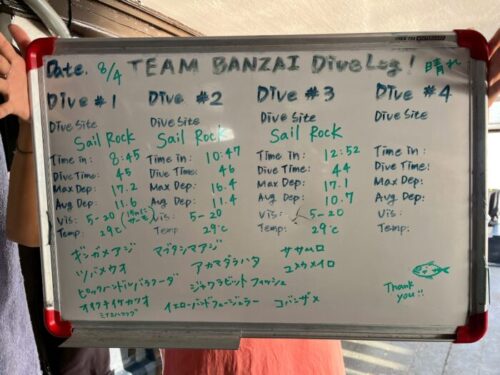 Date. 8/4 TEAM BANZAI Dive Log! 晴れ
Dive #1
Dive Site
Sail Rock
Time in: 8:45
Dive Time: 45
Max Dep: 17.2
Avg Dep: 11.6
Vis: 5-20
Temp: 29℃
Dive #2
Dive Site
Sail Rock
Time in: 10:47
Dive Time: 46
Max Dep: 16.4
Avg Dep: 11.4
Vis: 5-20
Temp: 29℃
Dive #3
Dive Site
Sail Rock
Time in: 12:52
Dive Time: 44
Max Dep: 17.1
Avg Dep: 10.7
Vis: 5-20
Temp: 29℃
Dive #4
Dive Site
Time in:
Dive Time:
Max Dep:
Avg Dep:
Vis:
Temp:
ギンガメアジ マブタシマアジ ササムロ
ツバメウオ アカマダラハタ ユメウメイロ
ピックハンドルバラクーダ ジャワラビットフィッシュ
オオクチイケカツオ イエローバンドフュージュラー コバンザメ
Thank you!!